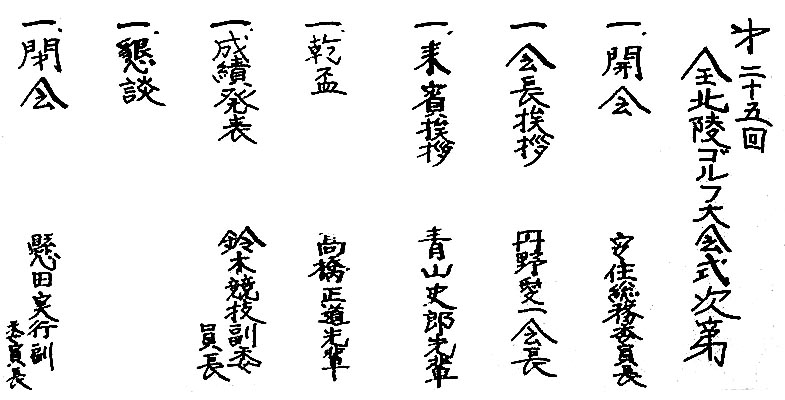 才二十五回
全北陵ゴルフ大会式次第
一、開会 安住総務委員長
一、会長挨拶 丹野愛一会長
一、来賓挨拶 青山史郎先輩
一、乾盃 高橋正道先輩
一、成績発表 鈴木競技副委員長
一、懇談
一、閉会 懸田実行副委員長